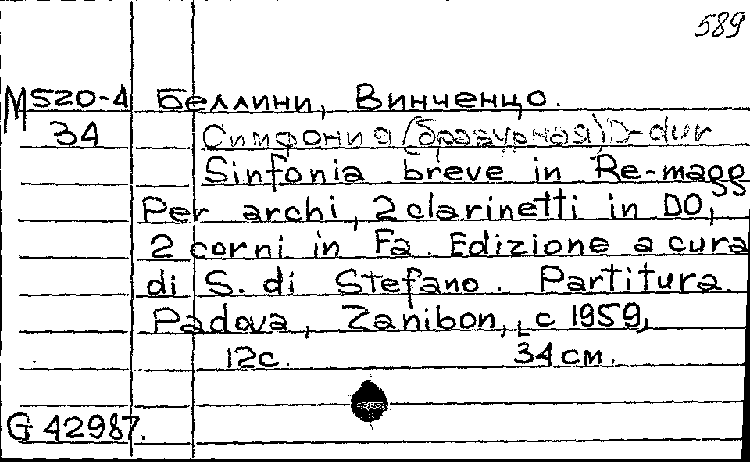 589
М520-4 Беллини, Винченцо.
34 Симфония (бравурная) D-dur
Sinfonia breve in Re-magg
Per archi, 2 clarinetti in DO,
2 corni in Fa. Edizione a cura
di S. di Stefano. Partitura.
Padova, Zanibon, с 1959,
12с. 34 см.
G 42987.